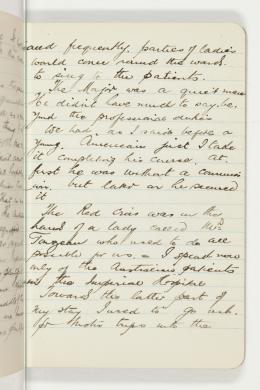 and frequently, parties of ladies
would come round the wards
to sing to the patients.
The Major was a quiet man
he didn't have much to say. he
had the professional duties
We had, as I said before a
young American just I take
it completing his course. at
first he was without a commiss
ion. but later on he secured
it
The Red Cross was in the
hands of a lady called Mrs
who used to do all
possible for us. I speak now
only of the Australian patients
in the Imperial Hospital
Towards the latter part of
my stay I used to go
for trips into the